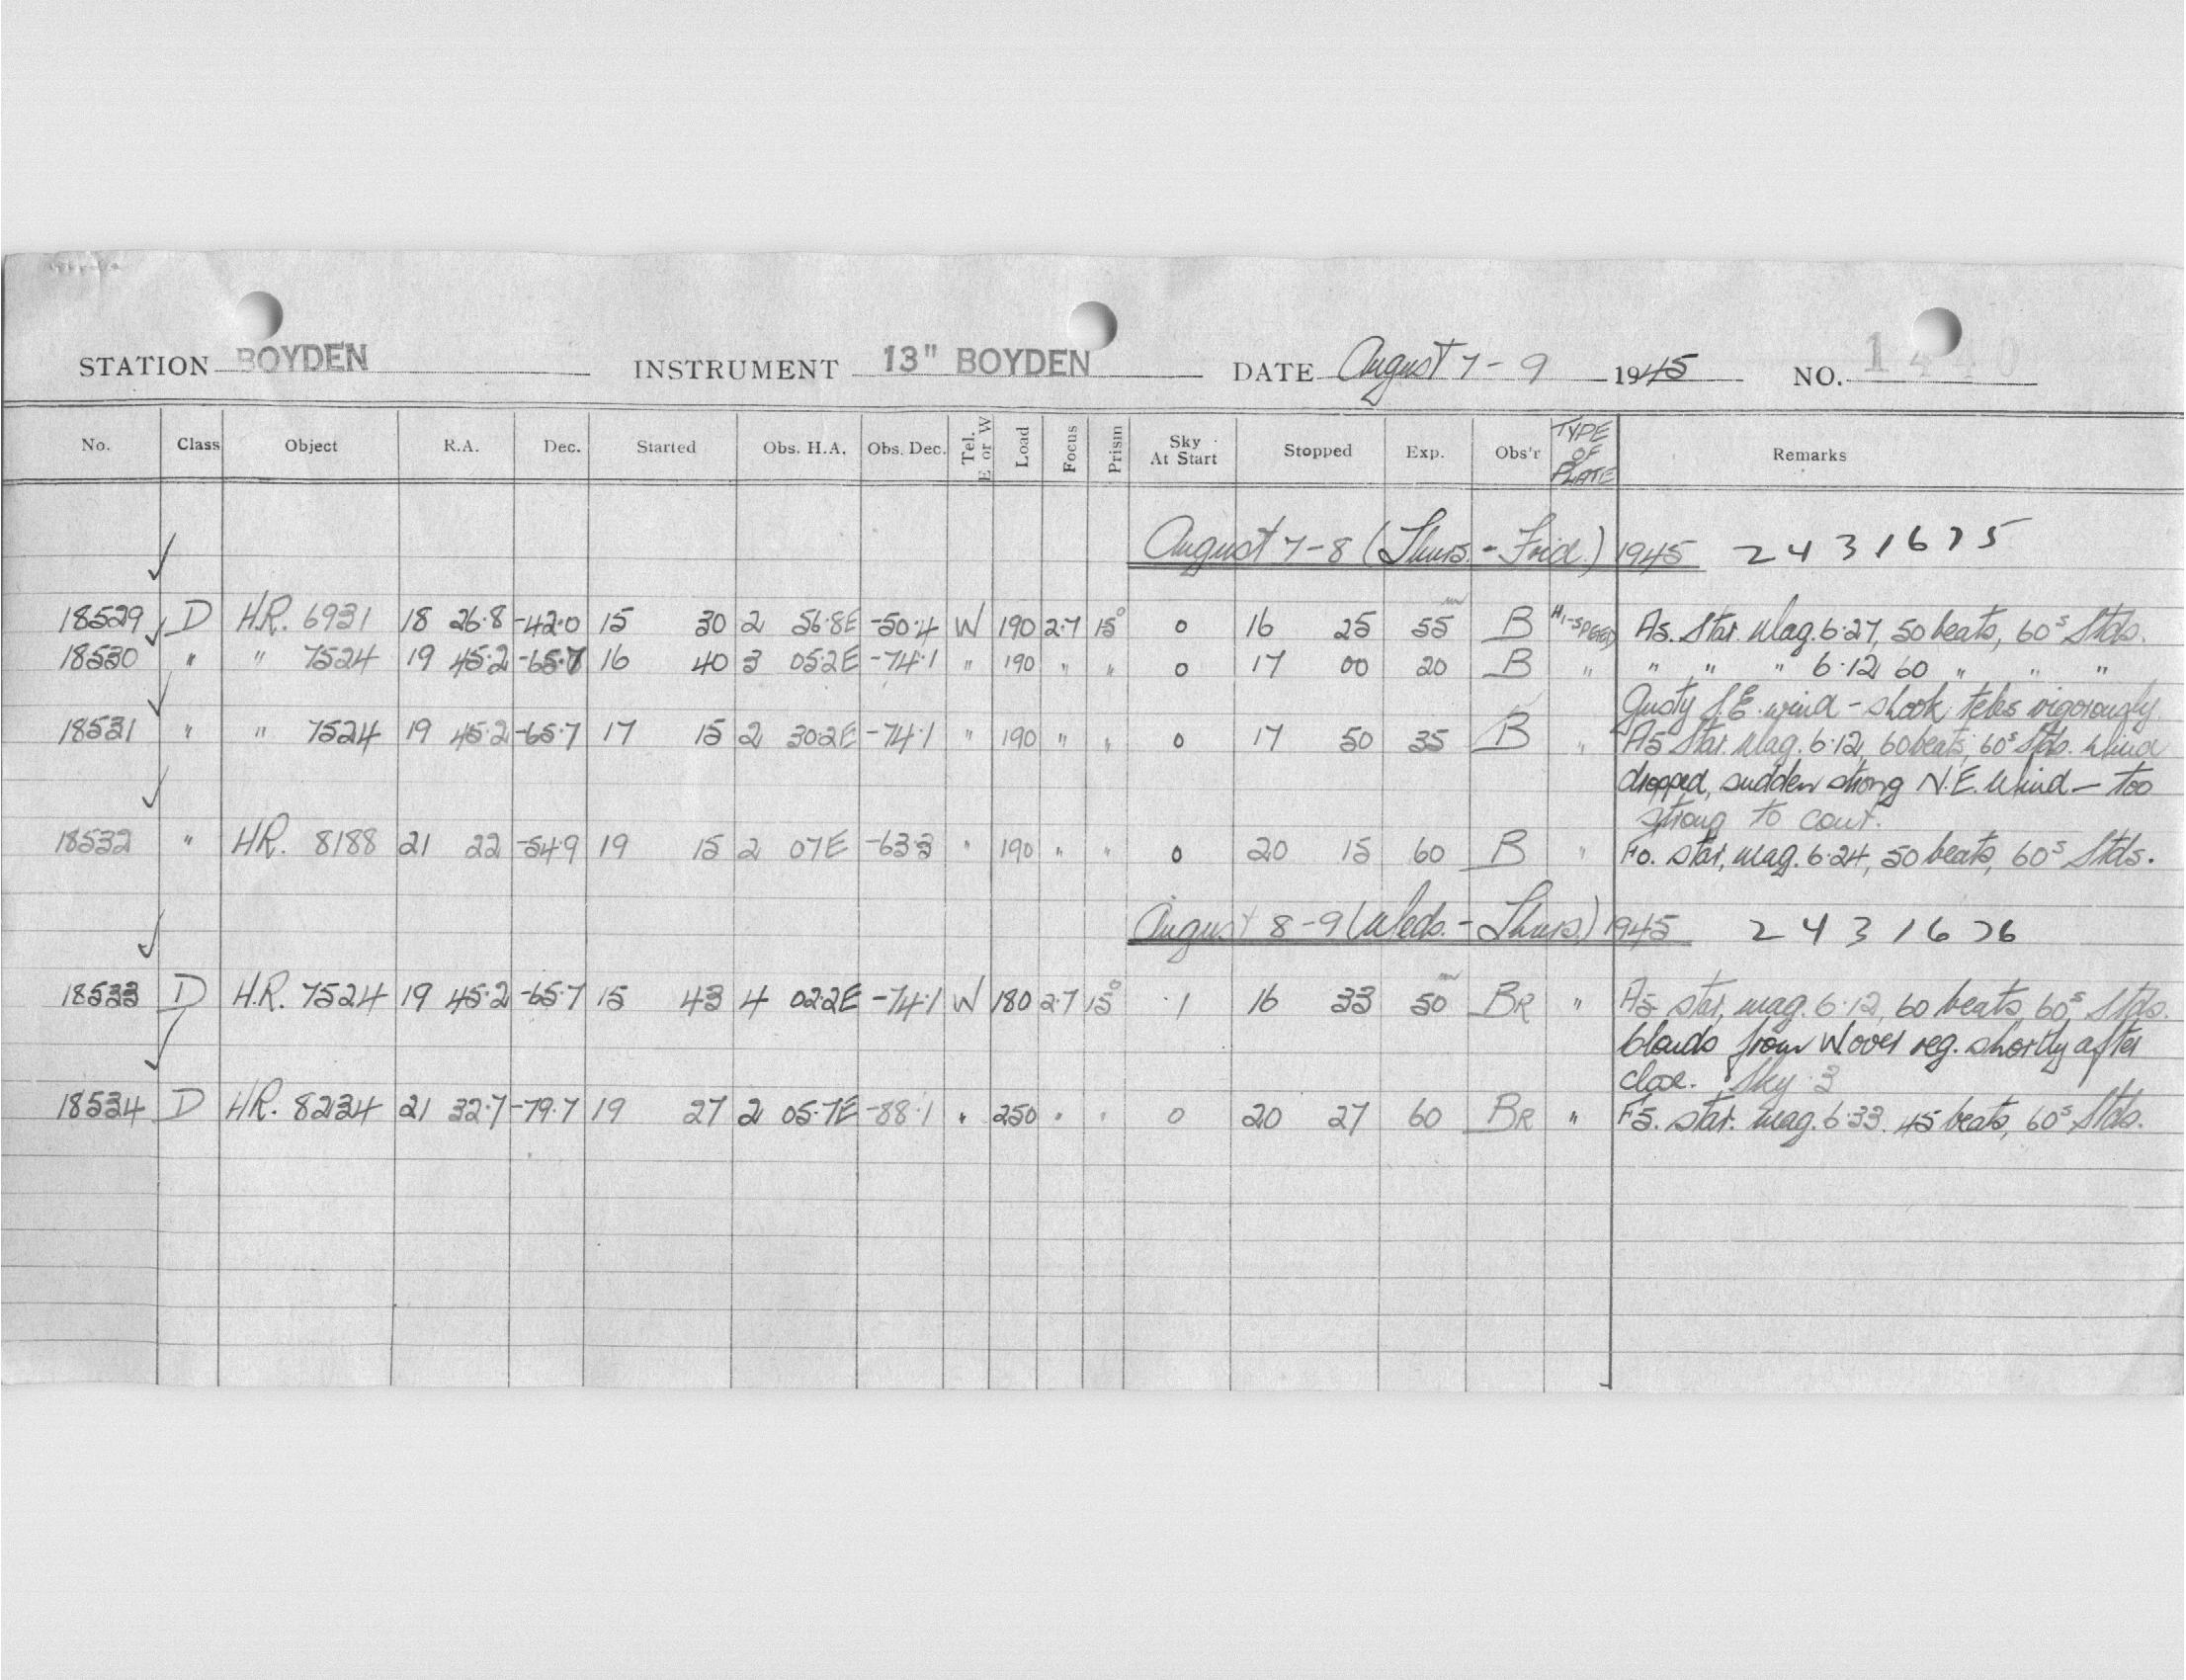 STATION BOYDEN INSTRUMENT 13" BOYDEN DATE August 7-9 1945 NO. 1440
No. Class Object R.A. Dec. Started Obs. H.A. Obs. Dec. Tel. E or W Load Focus Prism Sky At Start Stopped Exp. Obs'r TYPE OF PLATE Remarks
August 7-8 (Thurs. - Frid.) 1945 2431675
18529 D H.R. 6931 18 26.8 -42.0 15 30 2 56.8E -50.4 W 190 2.7 15° 0 16 25 55 B HI-SPEED A5. Star. Mag. 6.27, 50 beats, 60s Stds.
18530 " " 7524 19 45.2 -65.7 16 40 3 05.2E -74.1 " 190 " " 0 17 00 20 B " " " " 6.12, 60 " " "
Gusty S.E. wind - shook teles vigorously
18531 " " 7524 19 45.2 -65.7 17 15 2 30.2E -74.1 " 190 " " 0 17 50 35 B " A5 Star. Mag. 6.12, 60 beats, 60s Stds. Wind
dropped, sudden strong N.E. Wind - too
strong to cont.
18532 " HR. 8188 21 22 -54.9 19 15 2 07E -63.3 " 190 " " 0 20 15 60 B " F0. star, mag. 6.24, 50 beats, 60s Stds.
August 8-9 (Weds. - Thurs.) 1945 2431676
18533 D H.R. 7524 19 45.2 -65.7 15 43 4 02.2E -74.1 W 180 2.7 15° 1 16 33 50 BR " A5 star, mag. 6.12, 60 beats, 60s Stds.
Clouds from W over reg. shortly after
close. Sky 3
18534 D HR. 8234 21 32.7 -79.7 19 27 2 05.7E -88.1 " 250 " " 0 20 27 60 BR " F5. star. mag. 6.33. 45 beats, 60s Stds.